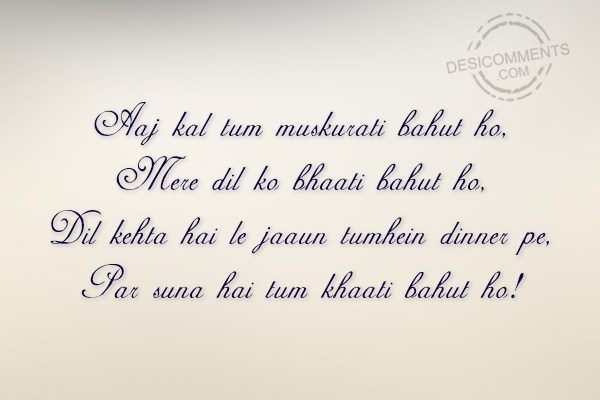 DESICOMMENTS
.COM
Aaj kal tum muskurati bahut ho,
Mere dil ko bhaati bahut ho,
Dil kehta hai le jaaun tumhein dinner pe,
Par suna hai tum khaati bahut ho!